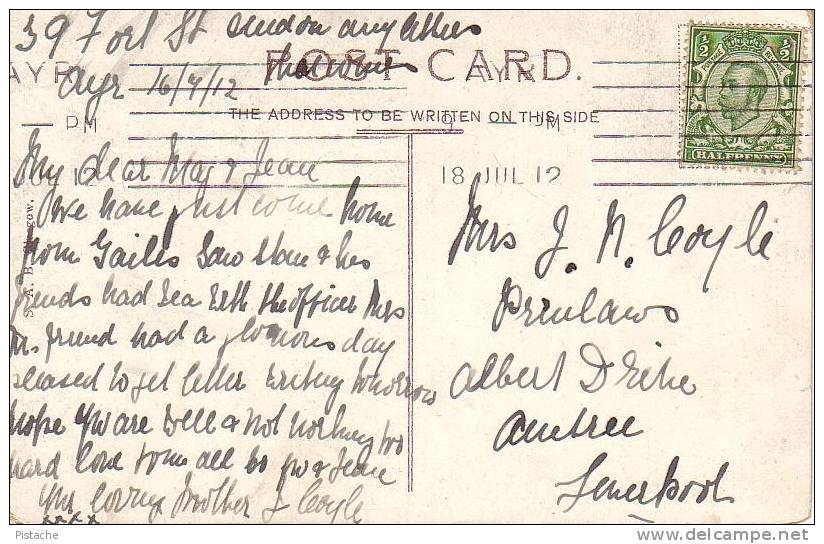 39 Fort St send on any letters
that comes
Ayr 16/7/12
POST CARD.
THE ADDRESS TO BE WRITTEN ON THIS SIDE
AYR
PM
AYR
PM
18 JUL 12
1/2 1/2
HALFPENNY
My dear May & Jean
We have just come home
from Gailes Saw Stan & his
friends had tea with the officer Mrs
Mr. friend had a glorious day
pleased to get letter writing tomorrow
hope you are well & not working too
hard love from all to you & Jean
Your loving Mother J Coyle
xxxx
Mrs J. N. Coyle
Penlaws
Albert Drive
Aintree
Liverpool
Pistache
delcampe.net